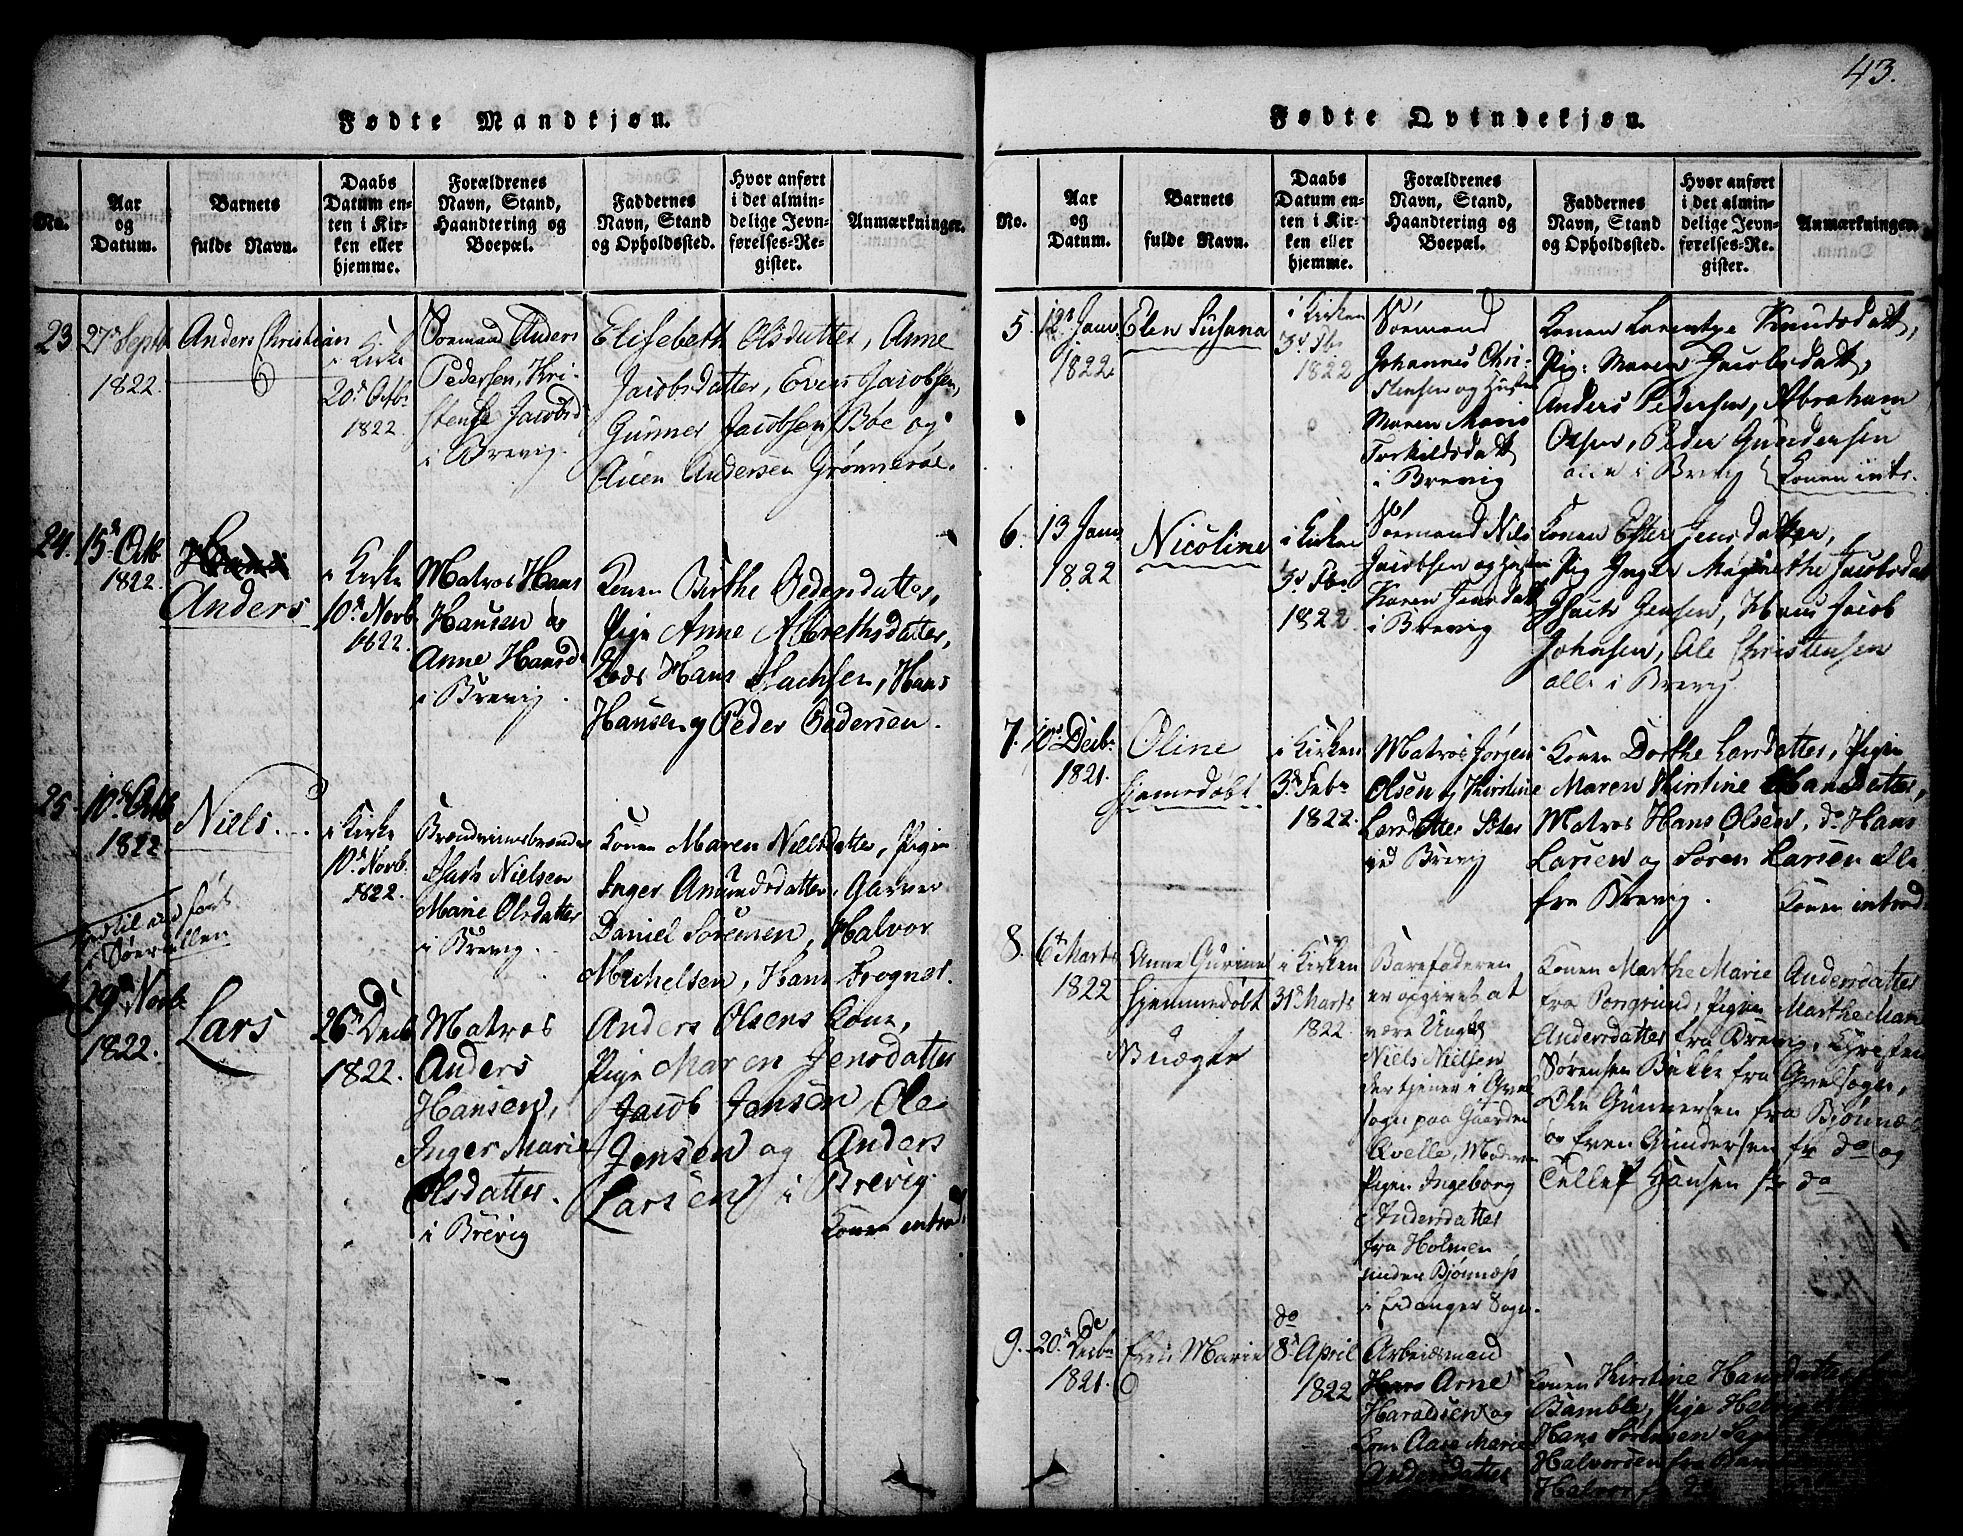 43.
Fødte Mandkjøn.
No.
Aar og Datum.
Barnets fulde Navn.
Daabs Datum enten i Kirken eller hjemme.
Forældrenes Navn, Stand, Haandtering og Boepæl.
Faddernes Navn, Stand og Opholdssted.
Hvor anført i det almindelige Jevnførelses-Register.
Anmærkninger.
23.
27de Septb
1822.
Anders Christian
i Kirke
20de Octbr
1822.
Sørmand Anders
Pedersen, Kri-
stense Jacobsd
i Brevig.
Elisebeth Olsdatter, Anne
Jacobsdatter, Even Jacobsen,
Gunner Jacobsen Boe og
Andersen Grønneroe.
24.
15de Octb
1822.
Anders
i Kirke
10de Novb.
1822.
Matros Hans
Hansen og
Anne Hansd
i Brevig.
Konen Birthe Pedersdatter,
Pige Anne Abrethsdatter,
Hans Isachsen, Hans
Hansen og Peder Pedersen.
25.
10de Octb
1822
Niels
i Kirke
10de Novb.
1822.
Isach Nielsen
Marie Olsdatter
i Brevig.
Konen Maren Nielsdatter, Pigen
Inger Amundsdatter, Garver
Daniel Sørensen, Halvor
Michelsen, Hans Frogner.
29de Novb
1822.
Lars
26de Decb
1822.
Matros
Anders
Hansen,
Inger Marie
Olsdatter.
i Brevig
Anders Olsens Kone,
Pige Maren Jensdatter
Jacob Jensen, Ole
Jensen og Anders
Larsen i Brevig
Konen introd.
Fødte Qvindekjøn.
No.
Aar og Datum.
Barnets fulde Navn.
Daabs Datum enten i Kirken eller hjemme.
Forældrenes Navn, Stand, Haandtering og Boepæl.
Faddernes Navn, Stand og Opholdssted.
Hvor anført i det almindelige Jevnførelses-Register.
Anmærkninger.
5.
12te Janu
1822.
Elen Susana
i Kirken
3d Fbr
1822
Sørmand
Johannes Chri-
stensen og Hustru
Maren Marie
Torkildsdatt
i Brevig
Konen Larentze Knudsdatt,
Pig: Maren Jacobsdatt,
Anders Pedersen, Abraham
Olsen, Peder Gundersen
alle i Brevig
Konen intr.
6.
13 Janu
1822
Nicoline
i Kirken
3d Fbr.
1822
Sørmand Niels
Jacobsen og Hustru
Karen Jensdatt
i Brevig
Konen Ester Jensdatter,
Pig Inger Magrethe Jacobsdat
Jensen, Hans Jacob
Johnsen, Ole Christensen
alle i Brevig.
7.
10de Decbr
1821.
Oline
hjemedøbt
i Kirken
3de Febr
1822.
Matros Jørgen
Olsen og Kirstine
Larsdatter
ved Brevig
Konen Dorthe Larsdatter, Pigen
Maren Kirstine Hansdatter,
Matros Hans Olsen, do Hans
Larsen og Søren Larsen alle
fra Brevig.
Konen introd.
8.
6te Marts
1822
Anne Gurine
hjemmedøbt
Uægte
i Kirken
31te Marts
1822.
Barnefaderen
er opgivet at
være Ungk
Niels Nielsen
der tjener i
sogn paa Gaarden
Qvelle, Moderen
Pigen Ingeborg
Andersdatter
fra Holmen
under Bjønnæs
i Eidanger Sogn.
Konen Marthe Marie Andersdatter
fra Porsgrund, Pigen Marthe Marie
Andersdatter fra Brevig,
Sørensen Bakke fra
Ole Gunnersen fra Bjønnæs
og Even Gundersen fr do og
Tellef Hansen fr do
9.
20de Decbr
1821.
Marie
do
8de April
1822
Arbeidsmand
Arne
Haraldsen og
Kone Aase Marie
Andersdatter
Konen Kirstine Hansdatter
Bamble, Pige
Hans Sørensen
Halvorsen fra Bamble
Halvor